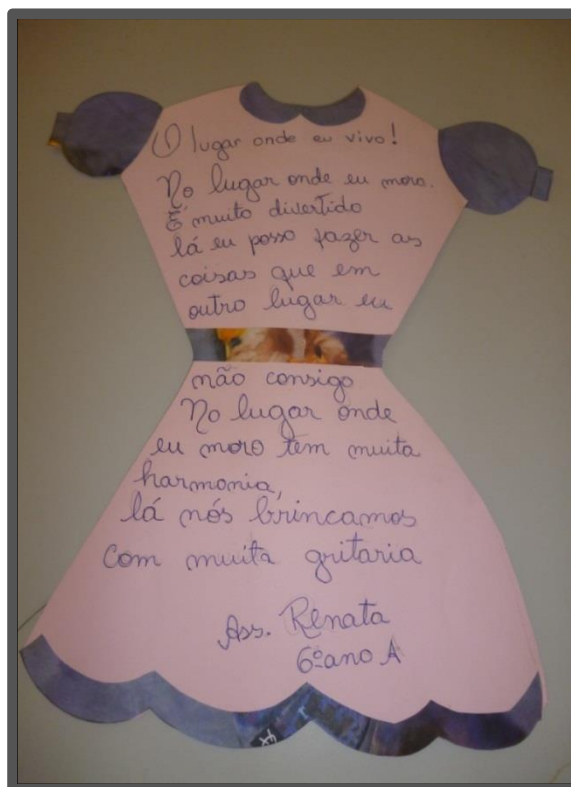 O lugar onde eu vivo!
No lugar onde eu moro.
É muito divertido
lá eu posso fazer as
coisas que em
outro lugar eu
não consigo
No lugar onde
eu moro tem muita
harmonia,
lá nós brincamos
com muita gritaria
Ass. Renata
6º ano A